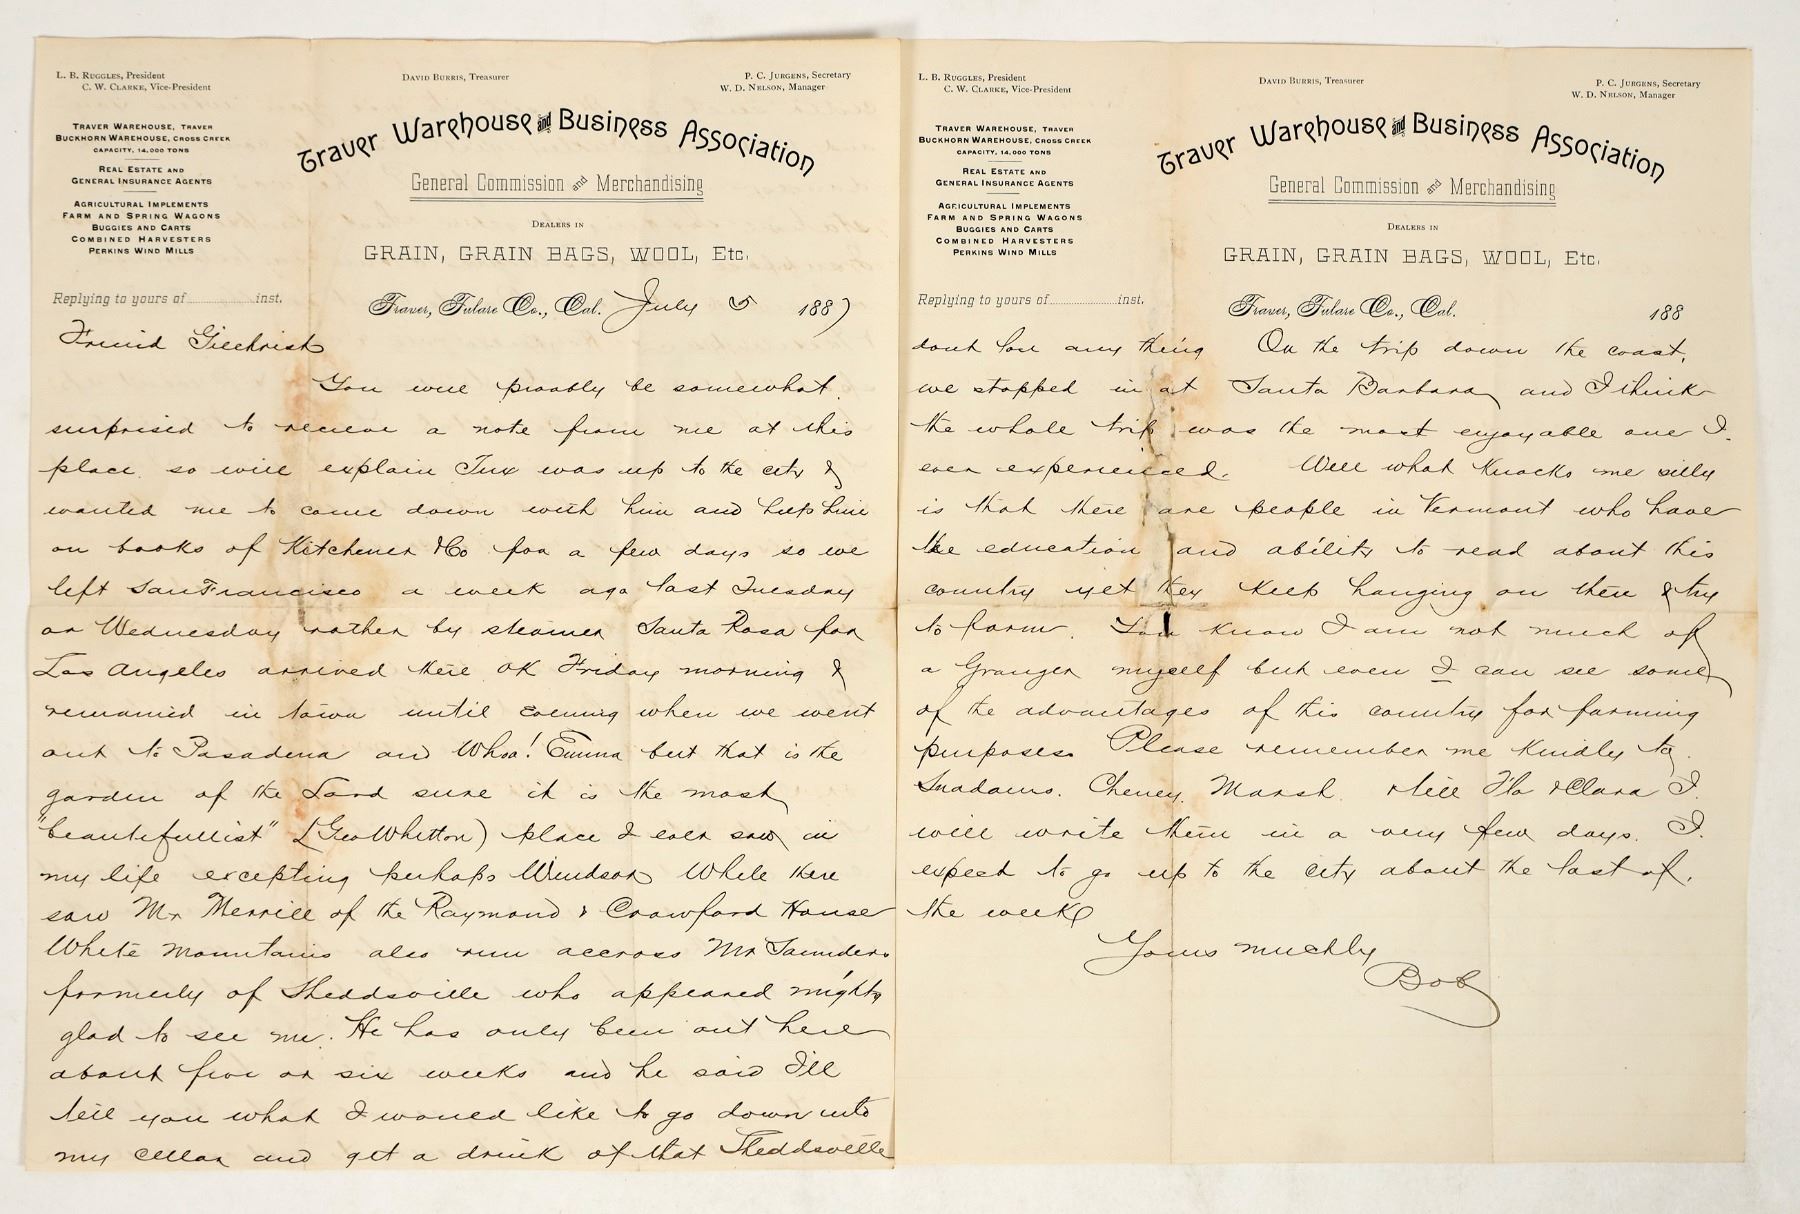 L. B. Ruggles, President
C. W. Clarke, Vice-President
David Burris, Treasurer
P. C. Jurgens, Secretary
W. D. Nelson, Manager
Traver Warehouse, Traver
Buckhorn Warehouse, Cross Creek
capacity, 14,000 tons
Real Estate and
General Insurance Agents
Agricultural Implements
Farm and Spring Wagons
Buggies and Carts
Combined Harvesters
Perkins Wind Mills
Traver Warehouse and Business Association
General Commission and Merchandising
Dealers in
GRAIN, GRAIN BAGS, WOOL, Etc.
Replying to yours of inst.
Traver, Tulare Co., Cal. July 5 1887
Friend Gilchrist
You will proably be somewhat
surprised to recieve a note from me at this
place so will explain Tux was up to the city &
wanted me to come down with him and help him
on books of Kitchener & Co for a few days so we
left San Francisco a week ago last Tuesday
or Wednesday rather by steamer Santa Rosa for
Los Angeles arrived there OK Friday morning &
remained in town until evening when we went
out to Pasadena and Whoa! Emma but that is the
garden of the Lord sure it is the most
"beautifullist" (Geo Whitton) place I ever saw in
my life excepting perhaps Windsor While there
saw Mr Merrill of the Raymond & Crawford House
White Mountains also run accross Mr Saunders
formerly of Sheddsville who appeared mighty
glad to see me. He has only been out here
about five or six weeks and he said I'll
tell you what I would like to go down into
my cellar and get a drink of that Sheddsville
L. B. Ruggles, President
C. W. Clarke, Vice-President
David Burris, Treasurer
P. C. Jurgens, Secretary
W. D. Nelson, Manager
Traver Warehouse, Traver
Buckhorn Warehouse, Cross Creek
capacity, 14,000 tons
Real Estate and
General Insurance Agents
Agricultural Implements
Farm and Spring Wagons
Buggies and Carts
Combined Harvesters
Perkins Wind Mills
Traver Warehouse and Business Association
General Commission and Merchandising
Dealers in
GRAIN, GRAIN BAGS, WOOL, Etc.
Replying to yours of inst.
Traver, Tulare Co., Cal. 188
dont lose any thing On the trip down the coast,
we stopped in at Santa Barbara and I think
the whole trip was the most enjoyable one I
ever experienced. Well what knocks me silly
is that there are people in Vermont who have
the education and ability to read about this
country yet they keep hanging on there & try
to farm. You know I am not much of
a Granger myself but even I can see some
of the advantages of this country for farming
purposes. Please remember me kindly to
Cheney. Marsh. & tell Flo & Clara I
will write them in a very few days. I
expect to go up to the city about the last of
the week
Yours muchly
Bob